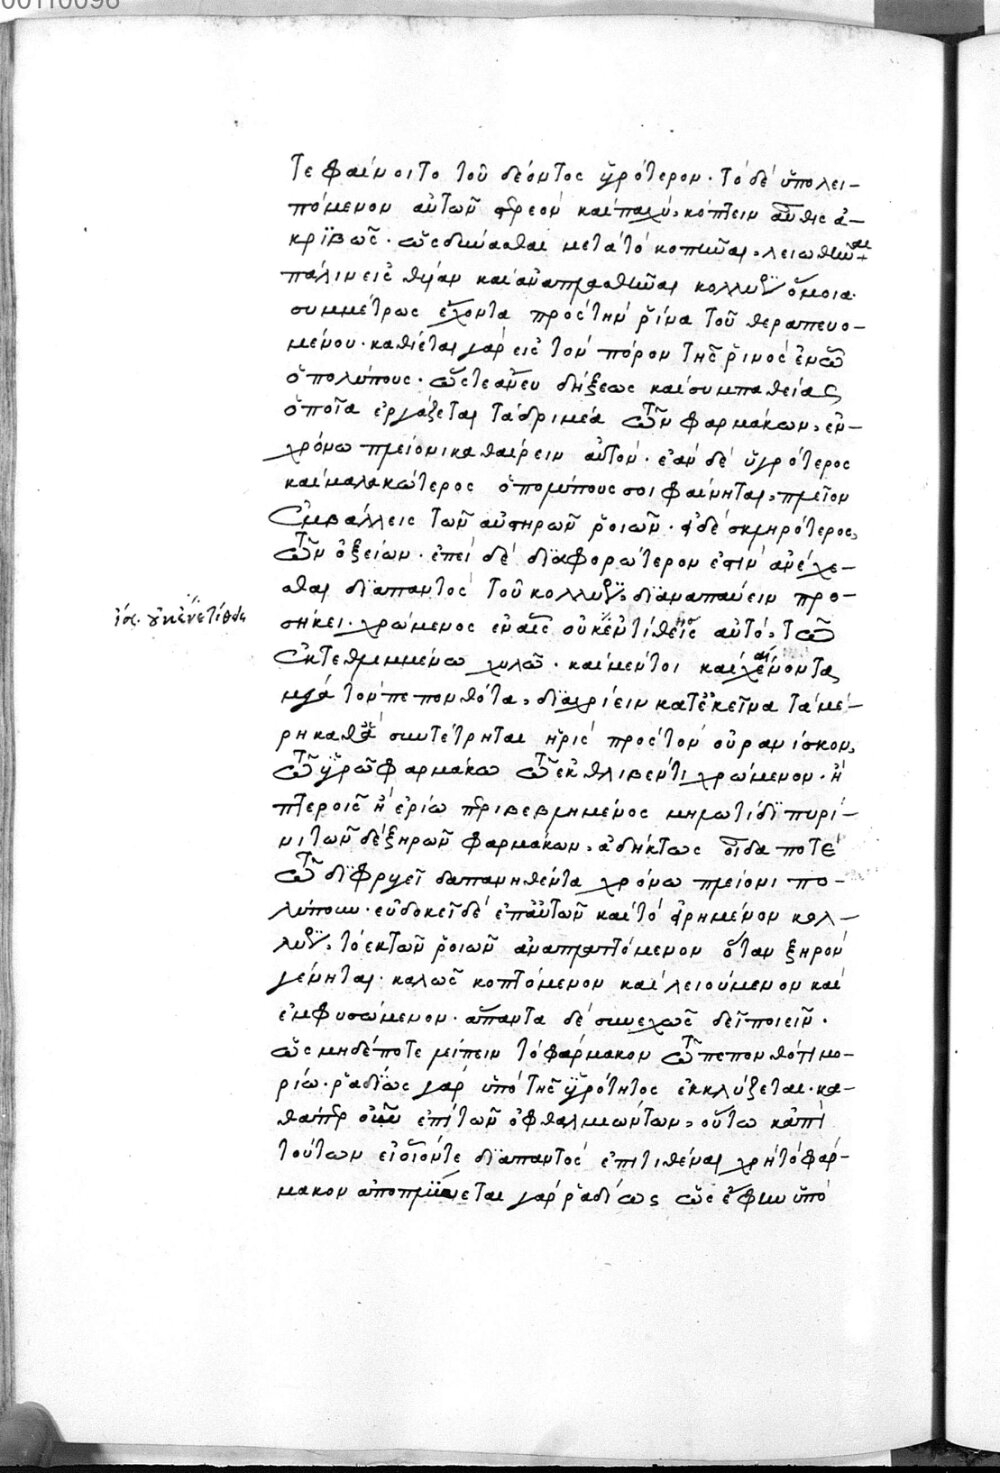 00110098
τε φαίνοιτο τοῦ δέοντος ὑγρότερον· τὸ δὲ ὑπολει-
πόμενον αὐτῶν στερεὸν καὶ παχὺ, κόπτειν αὖθις ἀ-
κριβῶς· ὡς δύνασθαι μετὰ τὸ κοπῆναι, λειωθῆναι
πάλιν εἰς θυίαν καὶ ἀναπλασθῆναι κολλύρια ὅμοια
συμμέτρως ἔχοντα πρὸς τὴν ῥῖνα τοῦ θεραπευο-
μένου· καθίεται γὰρ εἰς τὸν πόρον τῆς ῥινὸς ἐν ᾧ
ὁ πολύπους· ὥστε ἄνευ δήξεως καὶ συμπαθείας
ὁποῖα ἐργάζεται τὰ δριμέα τῶν φαρμάκων, ἐν
χρόνω πλείονι καθαίρειν αὐτόν· ἐὰν δὲ ὑγρότερος
καὶ μαλακώτερος ὁ πολύπους σοι φαίνηται, πλεῖον
ἐμβάλλεις τῶν αὐστηρῶν ῥοιῶν· εἰ δὲ σκληρότερος,
τῶν ὀξειῶν· ἐπεὶ δὲ δϊαφορώτερον ἐστὶν ἀνέχε-
σθαι δϊαπαντὸς τοῦ κολλυρίου, δϊαναπαύειν προ-
σήκει· χρώμενος ἐν αἷς οὐκ ἐντίθεις αὐτὸ, τῶ
ἐκτεθλιμμένω χυλῶ· καὶ μέντοι καὶ χαίνοντα
μέγα τὸν πεπονθότα, δϊαχρίειν κατ' ἐκεῖνα τὰ μέ-
ρη καθὰ συντέτρηται ἡ ῥὶς πρὸς τὸν οὐρανίσκον,
τῶ ὑγρῶ φαρμάκω τῶ ἐκθλιβέντι χρώμενον· ἢ
πτεροῖς ἢ ἐρίω περιβεβλημένος μηλωτίδϊ πυρί-
νι τῶν δὲ ξηρῶν φαρμάκων, ἀδήκτως οἶδα ποτὲ
τῶ δϊφρυγεῖ δαπανηθέντα χρόνω πλείονι πο-
λύπουν· εὐδοκεῖ δὲ ἐπ' αὐτῶν καὶ τὸ εἰρημένον κολ-
λύριον, τὸ ἐκ τῶν ῥοιῶν ἀναπλαττόμενον ὅταν ξηρὸν
γένηται· καλῶς κοπτόμενον καὶ λειούμενον καὶ
ἐμφυσώμενον· ἅπαντα δὲ συνεχῶς δεῖ ποιεῖν·
ὡς μηδέποτε λείπειν τὸ φάρμακον τῶ πεπονθότι μο-
ρίω· ῥαδίως γὰρ ὑπὸ τῆς ὑγρότητος ἐκκλύζεται· κα-
θάπερ οὖν ἐπὶ τῶν ὀφθαλμώντων, οὕτω κἀπὶ
τούτων εἰ οἷόν τε δϊαπαντὸς ἐπιτιθέναι χρὴ τὸ φάρ-
μακον ἀποπλύνεται γὰρ ῥαδίως ὡς ἔφην ὑπὸ